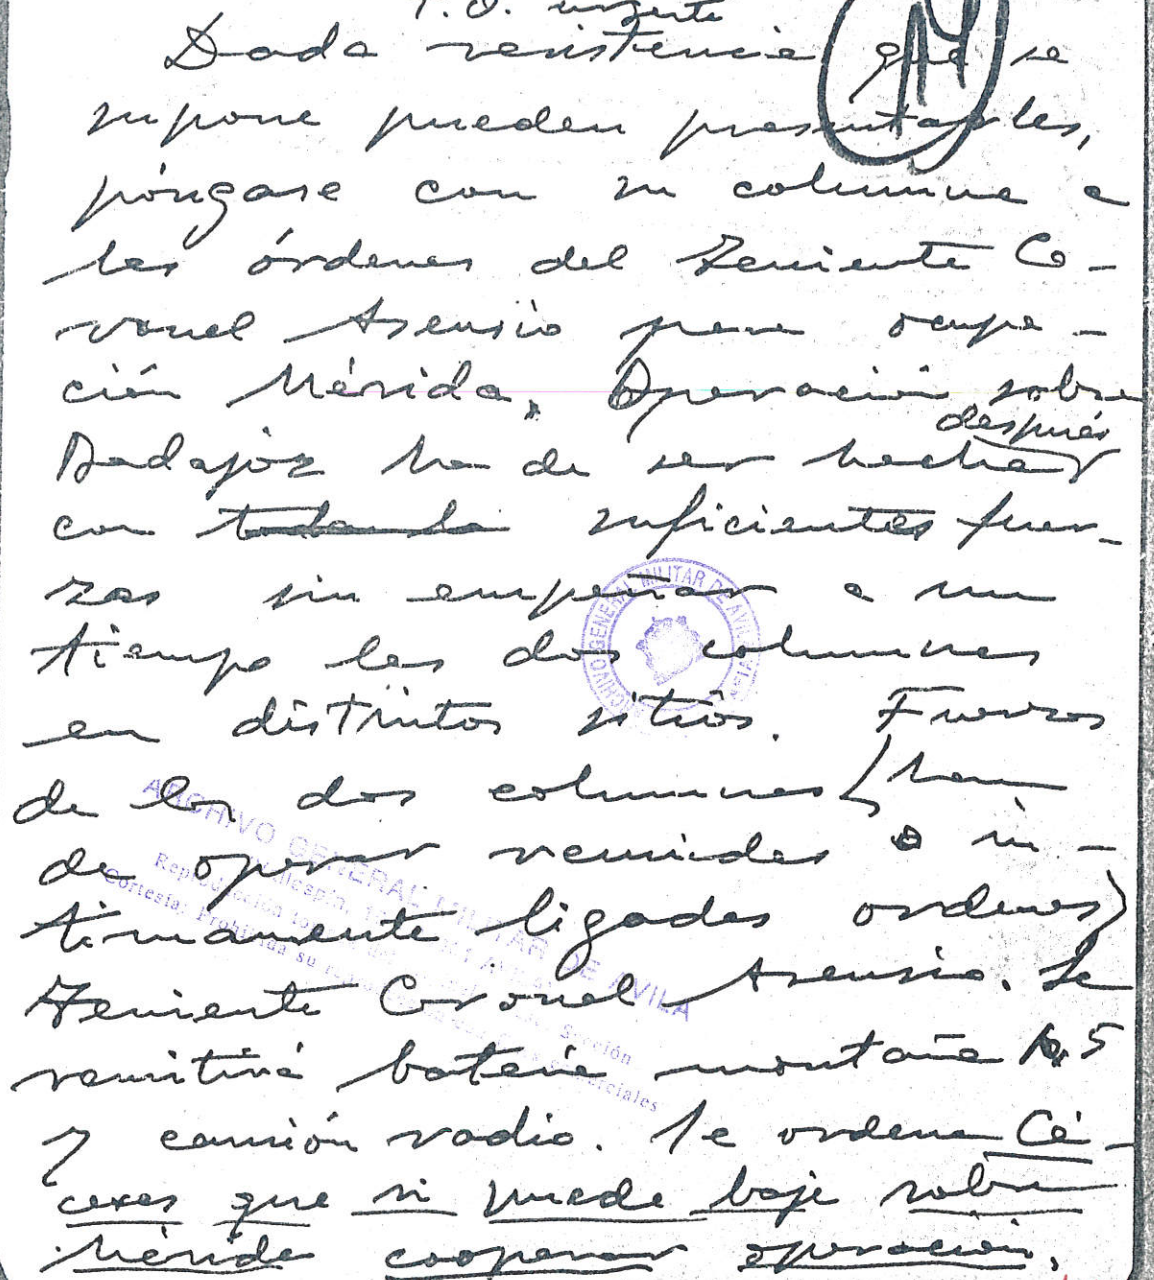 T.O. urgente
Dada resistencia que se
supone pueden presentarles,
póngase con su columna a
las órdenes del Teniente Co-
ronel Asensio para ocupa-
ción Mérida. Operación sobre
después
Badajoz ha de ser hecha
con toda la suficientes fuer-
zas sin empeñar a un
tiempo las dos columnas
en distintos sitios. Fuerzas
de las dos columnas han
de operar reunidas o ín-
timamente ligadas ordenes
Teniente Coronel Asensio. Se
remitirá batería montaña 10,5
y camión radio. Se ordena Cá-
ceres que si puede baje sobre
Mérida cooperar operación.
ARCHIVO GENERAL MILITAR DE AVILA
ARCHIVO GENERAL MILITAR DE AVILA
Cortesía: Prohibida su
Sección